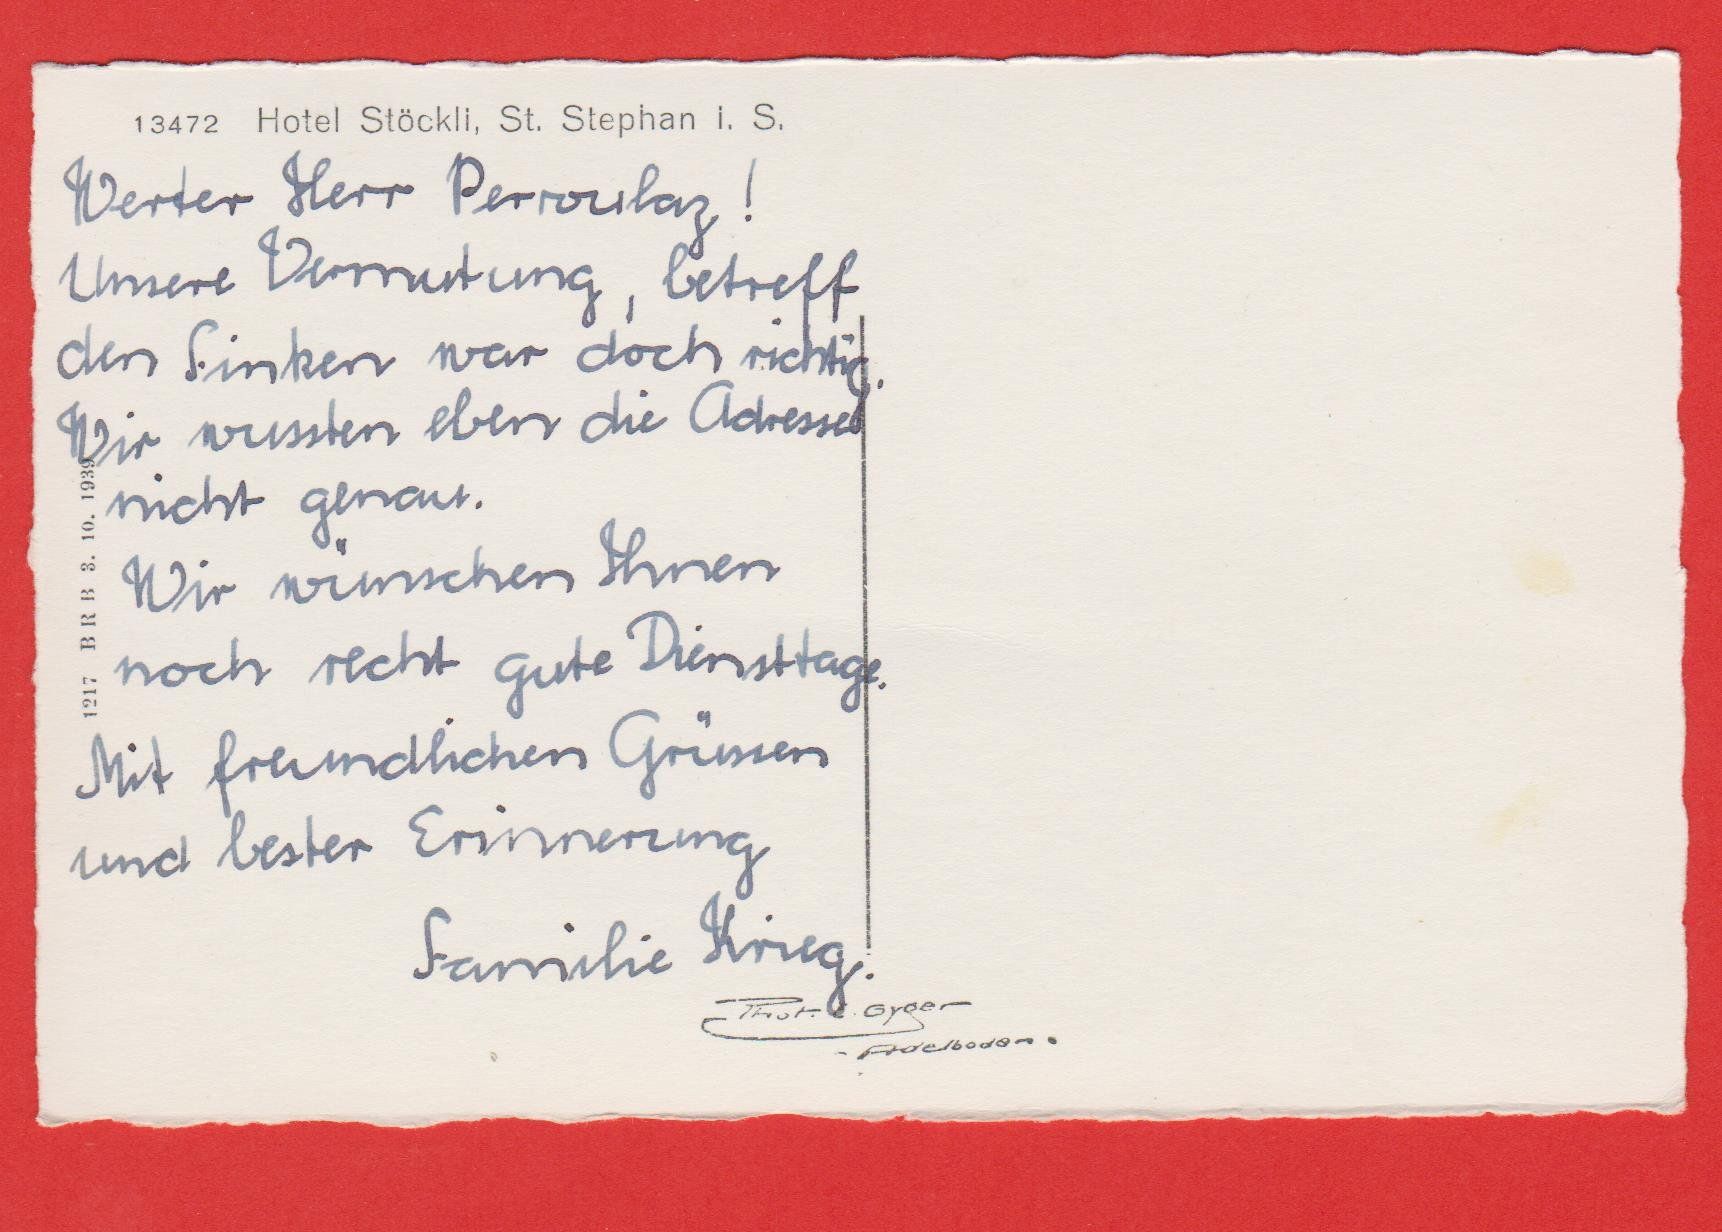 13472 Hotel Stöckli, St. Stephan i. S.
Werter Herr Perroulaz!
Unsere Vermutung, betreff
den Finken war doch richtig.
Wir wussten eben die Adresse
nicht genau.
Wir wünschen Ihnen
noch recht gute Diensttage.
Mit freundlichen Grüssen
und bester Erinnerung
Familie Krieg.
1217 BRB 3. 10. 1939
Phot. E. Gyger
- Adelboden.